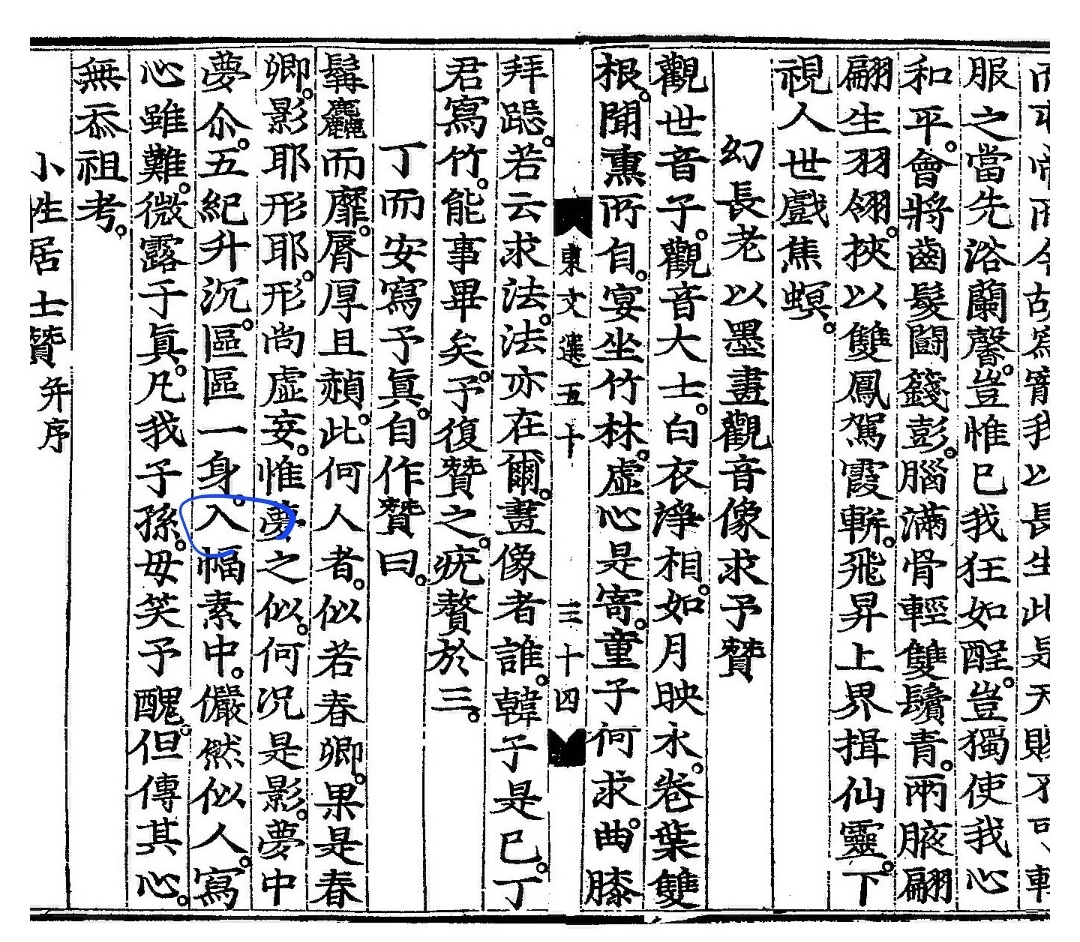 爲寵我以長生此是天賜不可
服之當先浴蘭馨。豈惟已我狂如酲。豈獨使我心
和平。會將齒髮鬪籛彭。腦滿骨輕雙鬢青。兩腋翩
翩生羽翎。挾以雙鳳駕霞輧。飛昇上界揖仙靈。下
視人世戲焦螟。
幻長老以墨畫觀音像求予贊
觀世音子。觀音大士。白衣淨相。如月映水。卷葉雙
根。聞熏所自。宴坐竹林。虛心是寄。童子何求。曲膝
東文選五十 三十四
拜跽。若云求法。法亦在爾。畫像者誰。韓子是已。丁
君寫竹。能事畢矣。予復贊之。疣贅於三。
丁而安寫予眞。自作贊曰。
髯麤而靡。脣厚且赬。此何人者。似若春卿。果是春
卿。影耶形耶。形尚虛妄。惟夢之似。何况是影。夢中
夢尒。五紀升沉。區區一身。入幅素中。儼然似人。寫
心雖難。微露于眞。凡我子孫。毋笑予醜。但傳其心。
無忝祖考。
小性居士贊 幷序